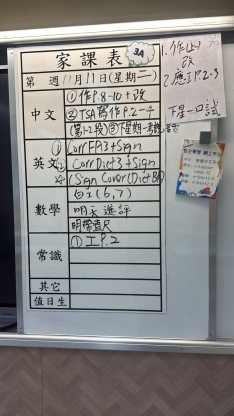 家課表
3A
第 週 11月11日(星期二)
中文
①作P.8-10+改
②TSA寫作P.2-4
(第1-2段)
英文
① Corr FP3+Sign
② Corr Dict3+Sign
☆(Sign Cover(Dict Bk)
數學
明天進評
明帶直尺
常識
①工P.2
其它
值日生
1.作(上)
改
2.應工P.2-3
下星一口試